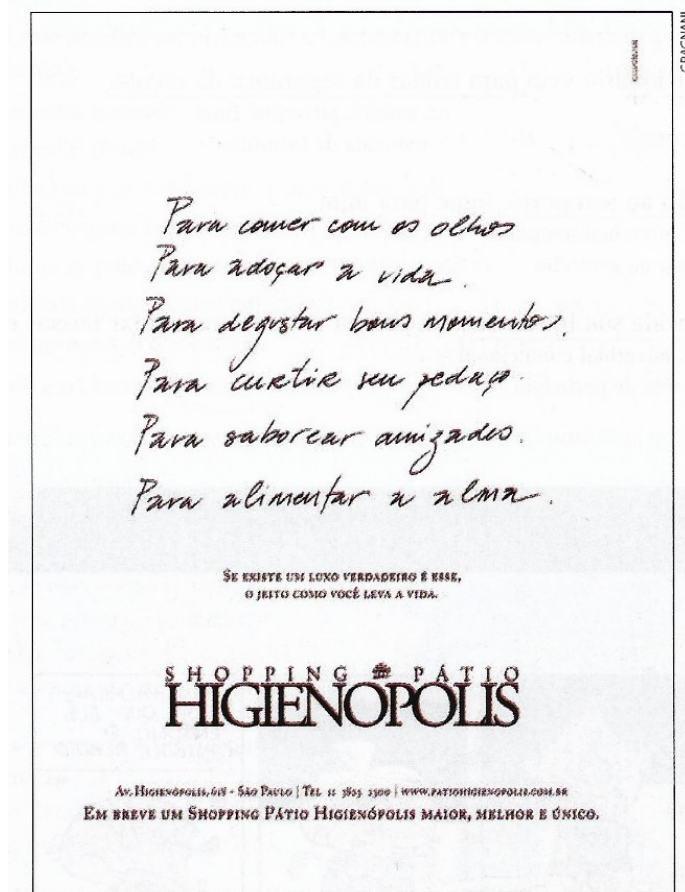 GRAGNANI
Para comer com os olhos
Para adoçar a vida.
Para degustar bons momentos.
Para curtir seu pedaço.
Para saborear amizades.
Para alimentar a alma.
SE EXISTE UM LUXO VERDADEIRO É ESSE,
O JEITO COMO VOCÊ LEVA A VIDA.
SHOPPING PÁTIO
HIGIENÓPOLIS
AV. HIGIENÓPOLIS, 618 - SÃO PAULO | TEL 11 3823 2300 | WWW.PATIOHIGIENOPOLIS.COM.BR
EM BREVE UM SHOPPING PÁTIO HIGIENÓPOLIS MAIOR, MELHOR E ÚNICO.